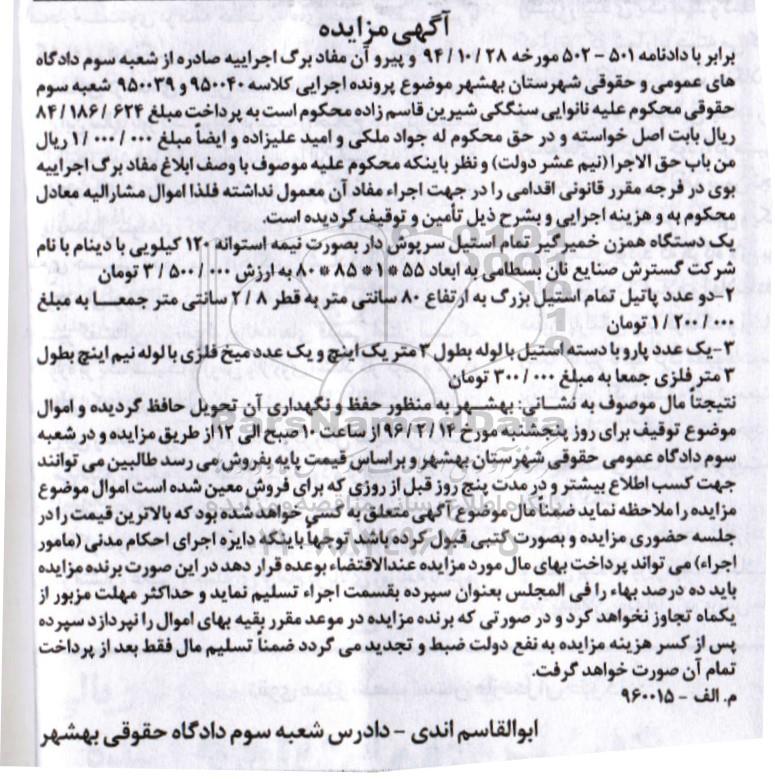 آگهی مزایده
برابر با دادنامه ۵۰۱ – ۵۰۲ مورخه ۹۴/۱۰/۲۸ و پیرو آن مفاد برگ اجراییه صادره از شعبه سوم دادگاه
های عمومی و حقوقی شهرستان بهشهر موضوع پرونده اجرایی کلاسه ۹۵۰۰۴۰ و ۹۵۰۰۳۹ شعبه سوم
حقوقی محکوم علیه نانوایی سنگکی شیرین قاسم زاده محکوم است به پرداخت مبلغ ۸۴/۱۸۶/۶۲۴
ریال بابت اصل خواسته و در حق محکوم له جواد ملکی و امید علیزاده و ایضاً مبلغ ۱/۰۰۰/۰۰۰ ریال
من باب حق الاجرا (نیم عشر دولت) و نظر باینکه محکوم علیه موصوف با وصف ابلاغ مفاد برگ اجراییه
بوی در فرجه مقرر قانونی اقدامی را در جهت اجراء مفاد آن معمول نداشته فلذا اموال مشارالیه معادل
محکوم به و هزینه اجرایی و بشرح ذیل تأمین و توقیف گردیده است.
یک دستگاه همزن خمیرگیر تمام استیل سرپوش دار بصورت نیمه استوانه ۱۲۰ کیلویی با دینام با نام
شرکت گسترش صنایع نان بسطامی به ابعاد ۵۵*۱*۸۵*۸۰ به ارزش ۳/۵۰۰/۰۰۰ تومان
۲-دو عدد پاتیل تمام استیل بزرگ به ارتفاع ۸۰ سانتی متر به قطر ۲/۸ سانتی متر جمعا به مبلغ
۱/۲۰۰/۰۰۰ تومان
۳-یک عدد پارو با دسته استیل با لوله بطول ۳ متر یک اینچ و یک عدد میخ فلزی با لوله نیم اینچ بطول
۳ متر فلزی جمعا به مبلغ ۳۰۰/۰۰۰ تومان
نتیجتاً مال موصوف به نشانی: بهشهر به منظور حفظ و نگهداری آن تحویل حافظ گردیده و اموال
موضوع توقیف برای روز پنجشنبه مورخ ۹۶/۲/۱۴ از ساعت ۱۰ صبح الی ۱۲ از طریق مزایده و در شعبه
سوم دادگاه عمومی حقوقی شهرستان بهشهر و براساس قیمت پایه بفروش می رسد طالبین می توانند
جهت کسب اطلاع بیشتر و در مدت پنج روز قبل از روزی که برای فروش معین شده است اموال موضوع
مزایده را ملاحظه نماید ضمناً مال موضوع آگهی متعلق به کسی خواهد شده بود که بالاترین قیمت را در
جلسه حضوری مزایده و بصورت کتبی قبول کرده باشد توجهاً باینکه دایره اجرای احکام مدنی (مامور
اجراء) می تواند پرداخت بهای مال مورد مزایده عندالاقتضاء بوعده قرار دهد در این صورت برنده مزایده
باید ده درصد بهاء را فی المجلس بعنوان سپرده بقسمت اجراء تسلیم نماید و حداکثر مهلت مزبور از
یکماه تجاوز نخواهد کرد و در صورتی که برنده مزایده در موعد مقرر بقیه بهای اموال را نپردازد سپرده
پس از کسر هزینه مزایده به نفع دولت ضبط و تجدید می گردد ضمناً تسلیم مال فقط بعد از پرداخت
تمام آن صورت خواهد گرفت.
م. الف – ۹۶۰۰۱۵
ابوالقاسم اندی – دادرس شعبه سوم دادگاه حقوقی بهشهر